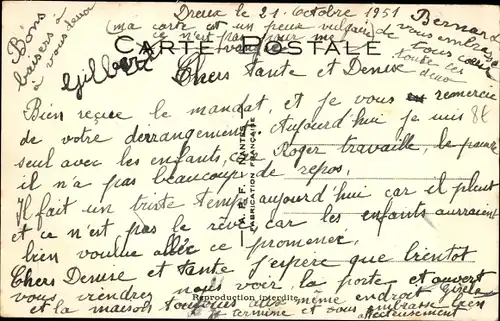 Dreux le 21 Octobre 1951
(ma carte est un peu vulgaire
ce n'est pas pour me
Bons
baisers à
vous deux
Gilbert
Bernard
vous embrasse
de tous
toutes les
deux
CARTE POSTALE
Chers Tante et Denise
Bien reçue le mandat, et je vous en remercie
de votre derrangement Aujourd'hui je suis
seul avec les enfants, car Roger travaille, le pauvre
il n'a pas beaucoup de repos.
Il fait un triste temps aujourd'hui car il pleut
et ce n'est pas le rêve car les enfants auraient
bien voulue allée ce promener.
Chers Denise et Tante J'espère que bientôt
vous viendrez nous voir, la porte et ouvert
et la maison toujours au même endroit
Je termine et vous embrasse bien
affectueusement
Gisèle
A. P. F. NANTES
FABRICATION FRANÇAISE
Reproduction interdite